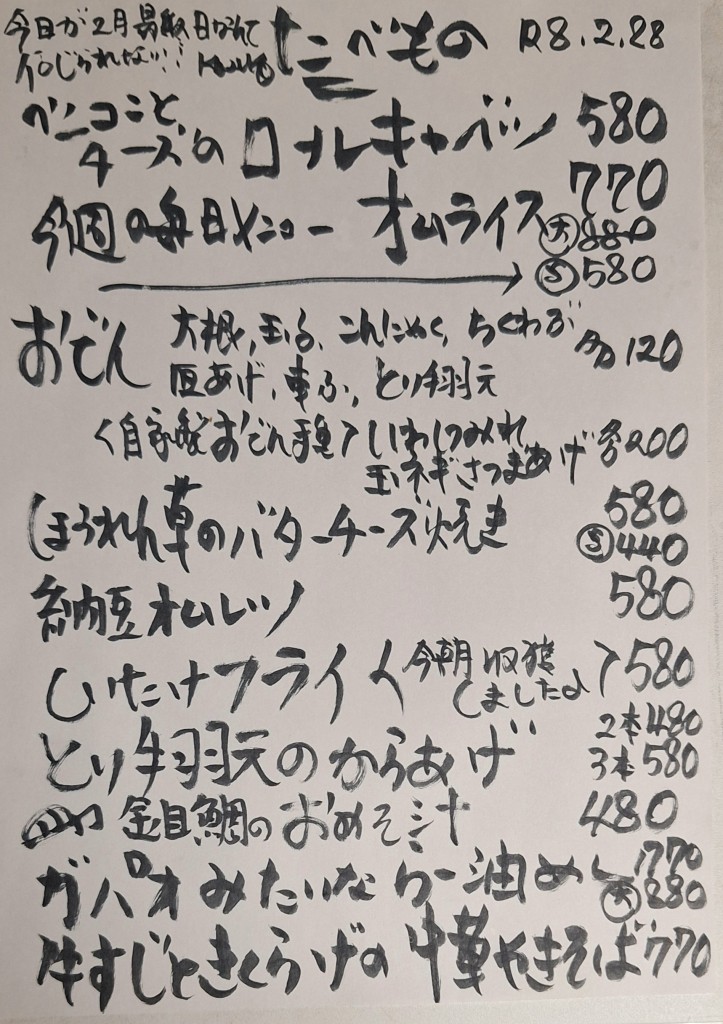 今日が2月最終日なんて
信じられない!!
たべもの R8.2.28
ベーコンと
チーズの ロールキャベツ 580
今週の毎日メニュー オムライス 770
大 880
S 580
おでん 大根、玉子、こんにゃく、ちくわぶ
厚あげ、車ふ、とり手羽元 各120
<自家製おでん種> いわしつみれ
玉ネギさつまあげ 各200
ほうれん草のバターチーズ焼き 580
S 440
納豆オムレツ 580
しいたけフライ <今朝収穫
しましたよ> 580
とり手羽元のからあげ 2本480
3本580
金目鯛のおみそ汁 480
ガパオみたいならー油めし 770
大 880
牛すじときくらげの中華やきそば 770